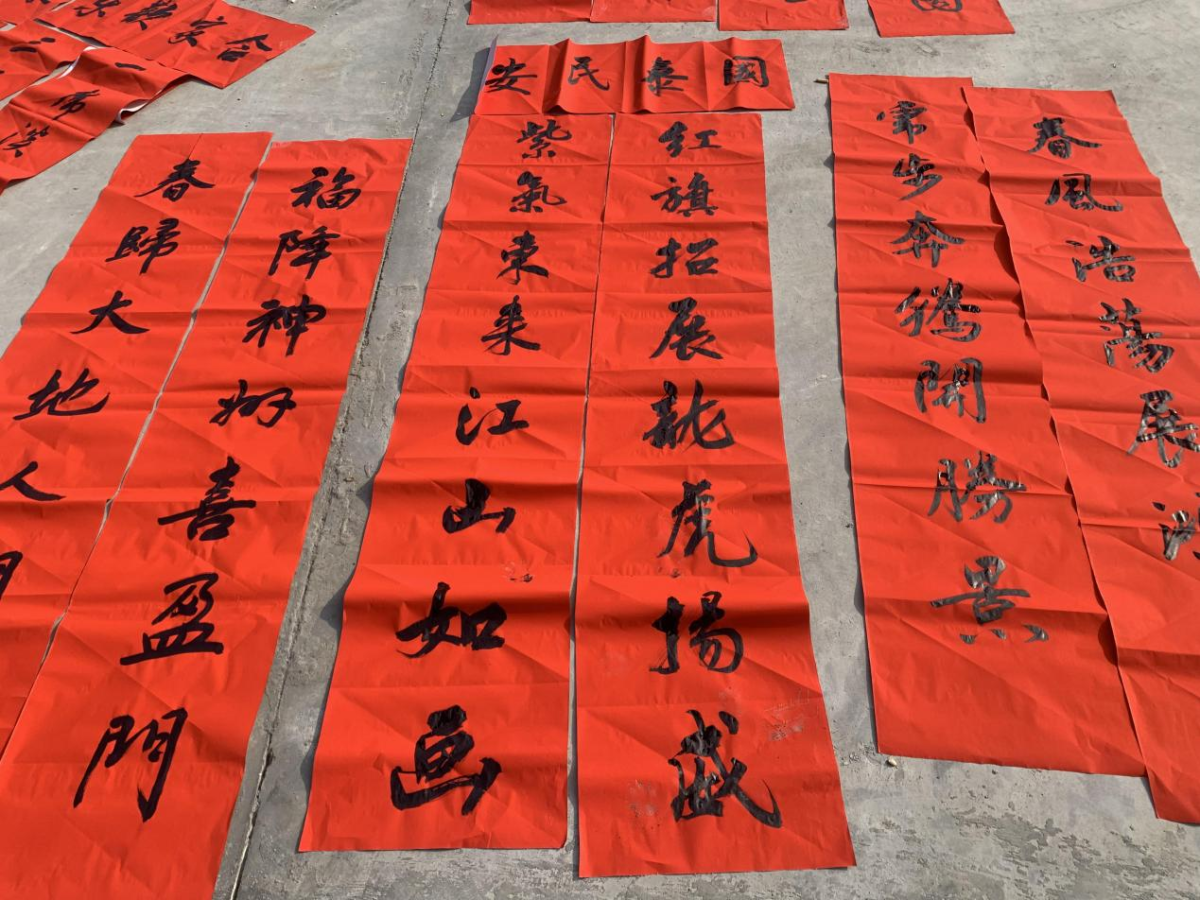 國泰民安
春風浩蕩展
常步奔騰開勝景
红旗招展龍虎揚威
紫氣東来江山如画
福降神州喜盈門
春歸大地人